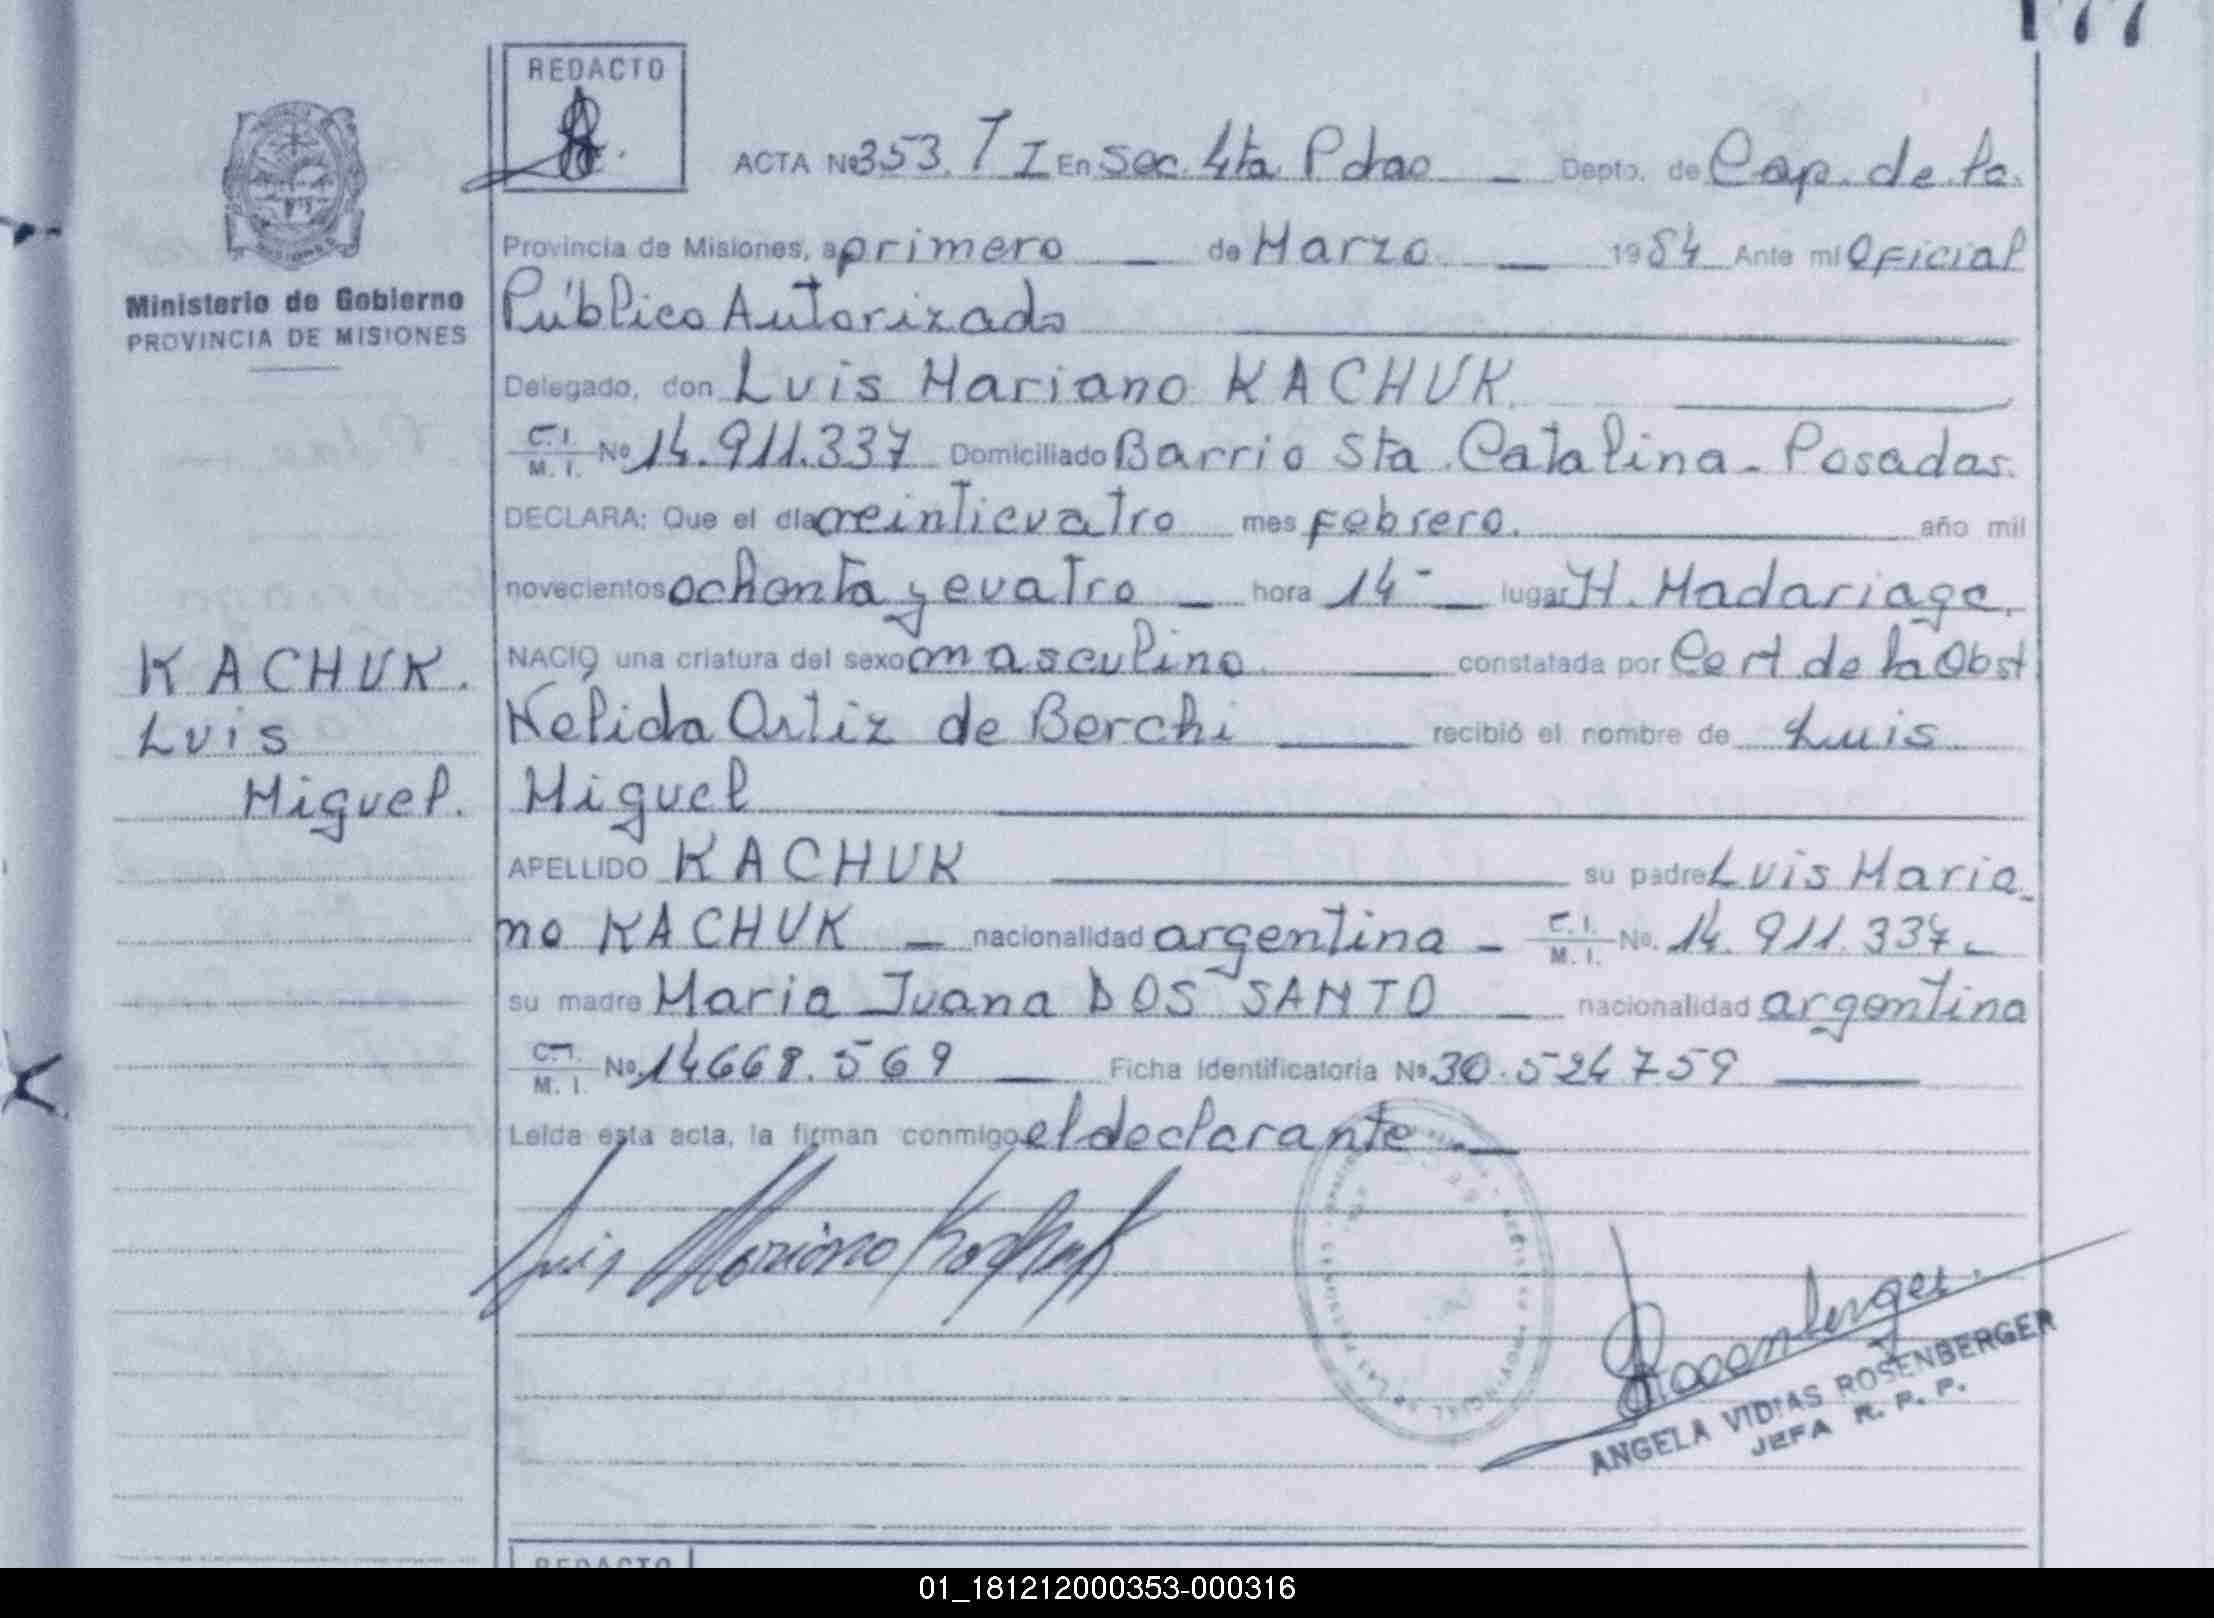 177
REDACTO
ACTA Nº 353. T I En Sec. 4ta Pdas Depto. de Cap. de la
Provincia de Misiones, a primero de Marzo 1984 Ante mi Oficial
Ministerio de Gobierno
PROVINCIA DE MISIONES
Público Autorizado
Delegado, don Luis Mariano KACHUK.
C. I. M. I. Nº 14.911.337 Domiciliado Barrio Sta. Catalina - Posadas.
DECLARA: Que el día veinticuatro mes febrero. año mil
novecientos ochenta y cuatro hora 14 - lugar H. Madariaga.
NACIÓ una criatura del sexo masculino constatada por Cert de la Obst
Nelida Ortiz de Berchi recibió el nombre de Luis
Miguel
KACHUK.
Luis
Miguel.
APELLIDO KACHUK su padre Luis Maria-
no KACHUK - nacionalidad argentina - C. I. M. I. No. 14.911.337-
su madre Maria Juana DOS SANTO nacionalidad argentina
C. I. M. I. Nº 14668.569 Ficha identificatoria Nº 30.524759
Leída esta acta, la firman conmigo el declarante
Luis Mariano Kachuk
Rosenberger
ANGELA VIDIAS ROSENBERGER
JEFA R. P. P.
REDACTO
01_181212000353-000316